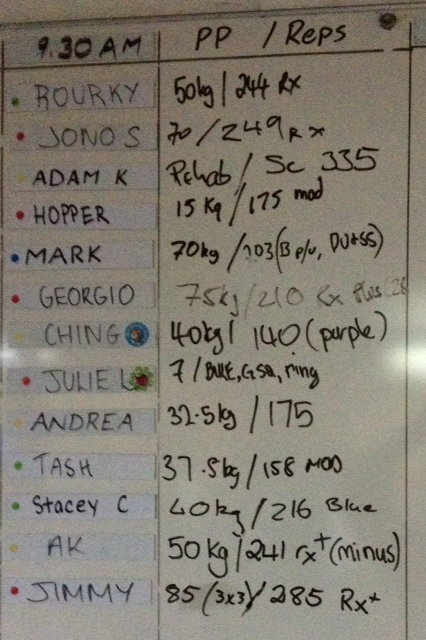 9.30 AM PP / Reps
ROURKY 50kg / 244 Rx
JONO S 70 / 249 Rx
ADAM K Rehab / Sc 335
HOPPER 15 Kg / 175 mod
MARK 70kg / 103 (B p/u, DU+SS)
GEORGIO 75kg / 210 Rx Plus
CHING 40kg / 140 (purple)
JULIE L 7 / BLUE, GSQ, ring
ANDREA 32.5kg / 175
TASH 37.5kg / 158 MOD
Stacey C 40kg / 216 Blue
AK 50 Kg / 241 rx+ (minus)
JIMMY 85 (3x3) / 285 Rx+